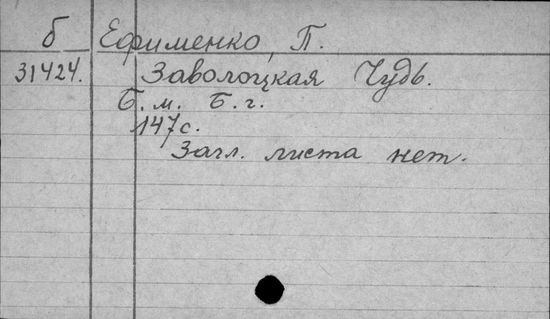 б Ефименко, П.
31424. Заволоцкая Чудь.
Б. м. Б. г.
147с.
Загл. листа нет.